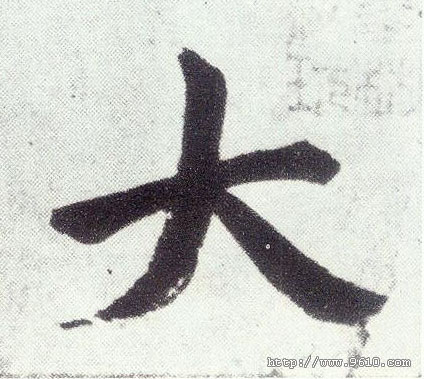 大
http://www.9610.com